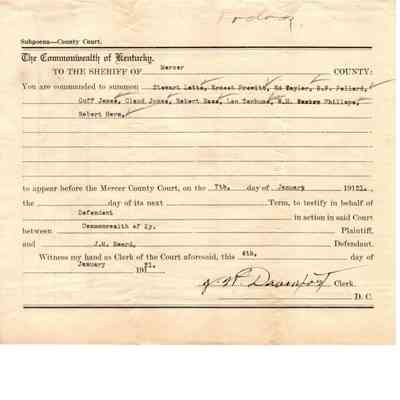 Today
Subpoena—County Court.
The Commonwealth of Kentucky.
TO THE SHERIFF OF Mercer COUNTY:
You are commanded to summon Stewart Latta, Ernest Prewitt, Ed Tayler, S.P. Pollard,
Cuff James, Claud Jones, Robert Rose, Len Yanhuns, W.M. Phillops,
Robert Horn,
to appear before the Mercer County Court, on the 7th, day of January 19121.
the day of its next Term, to testify in behalf of
Defendant in action in said Court
between Commonwealth of Ky. Plaintiff,
and J.M. Beard, Defendant.
Witness my hand as Clerk of the Court aforesaid, this 4th, day of
January 19121.
Davenport Clerk
D. C.